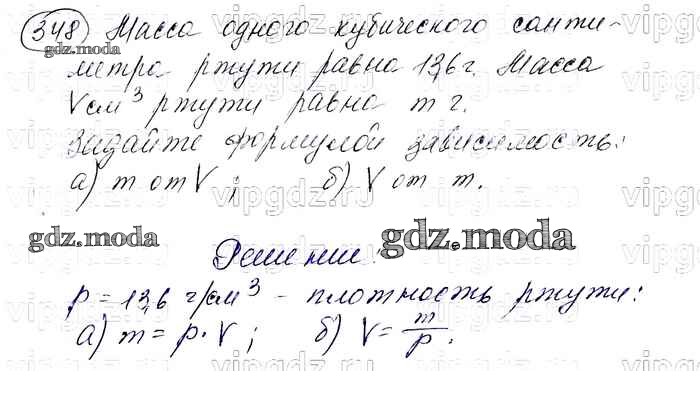 348) Масса одного кубического санти-
gdz.moda
метра ртути равна 13,6 г. Масса
V см³ ртути равна m г.
Задайте формулой зависимость:
а) m от V; б) V от m.
gdz.moda
gdz.moda
Решение:
p = 13,6 г/см³ - плотность ртути:
а) m = p · V; б) V = m/p.
vipgdz.ru